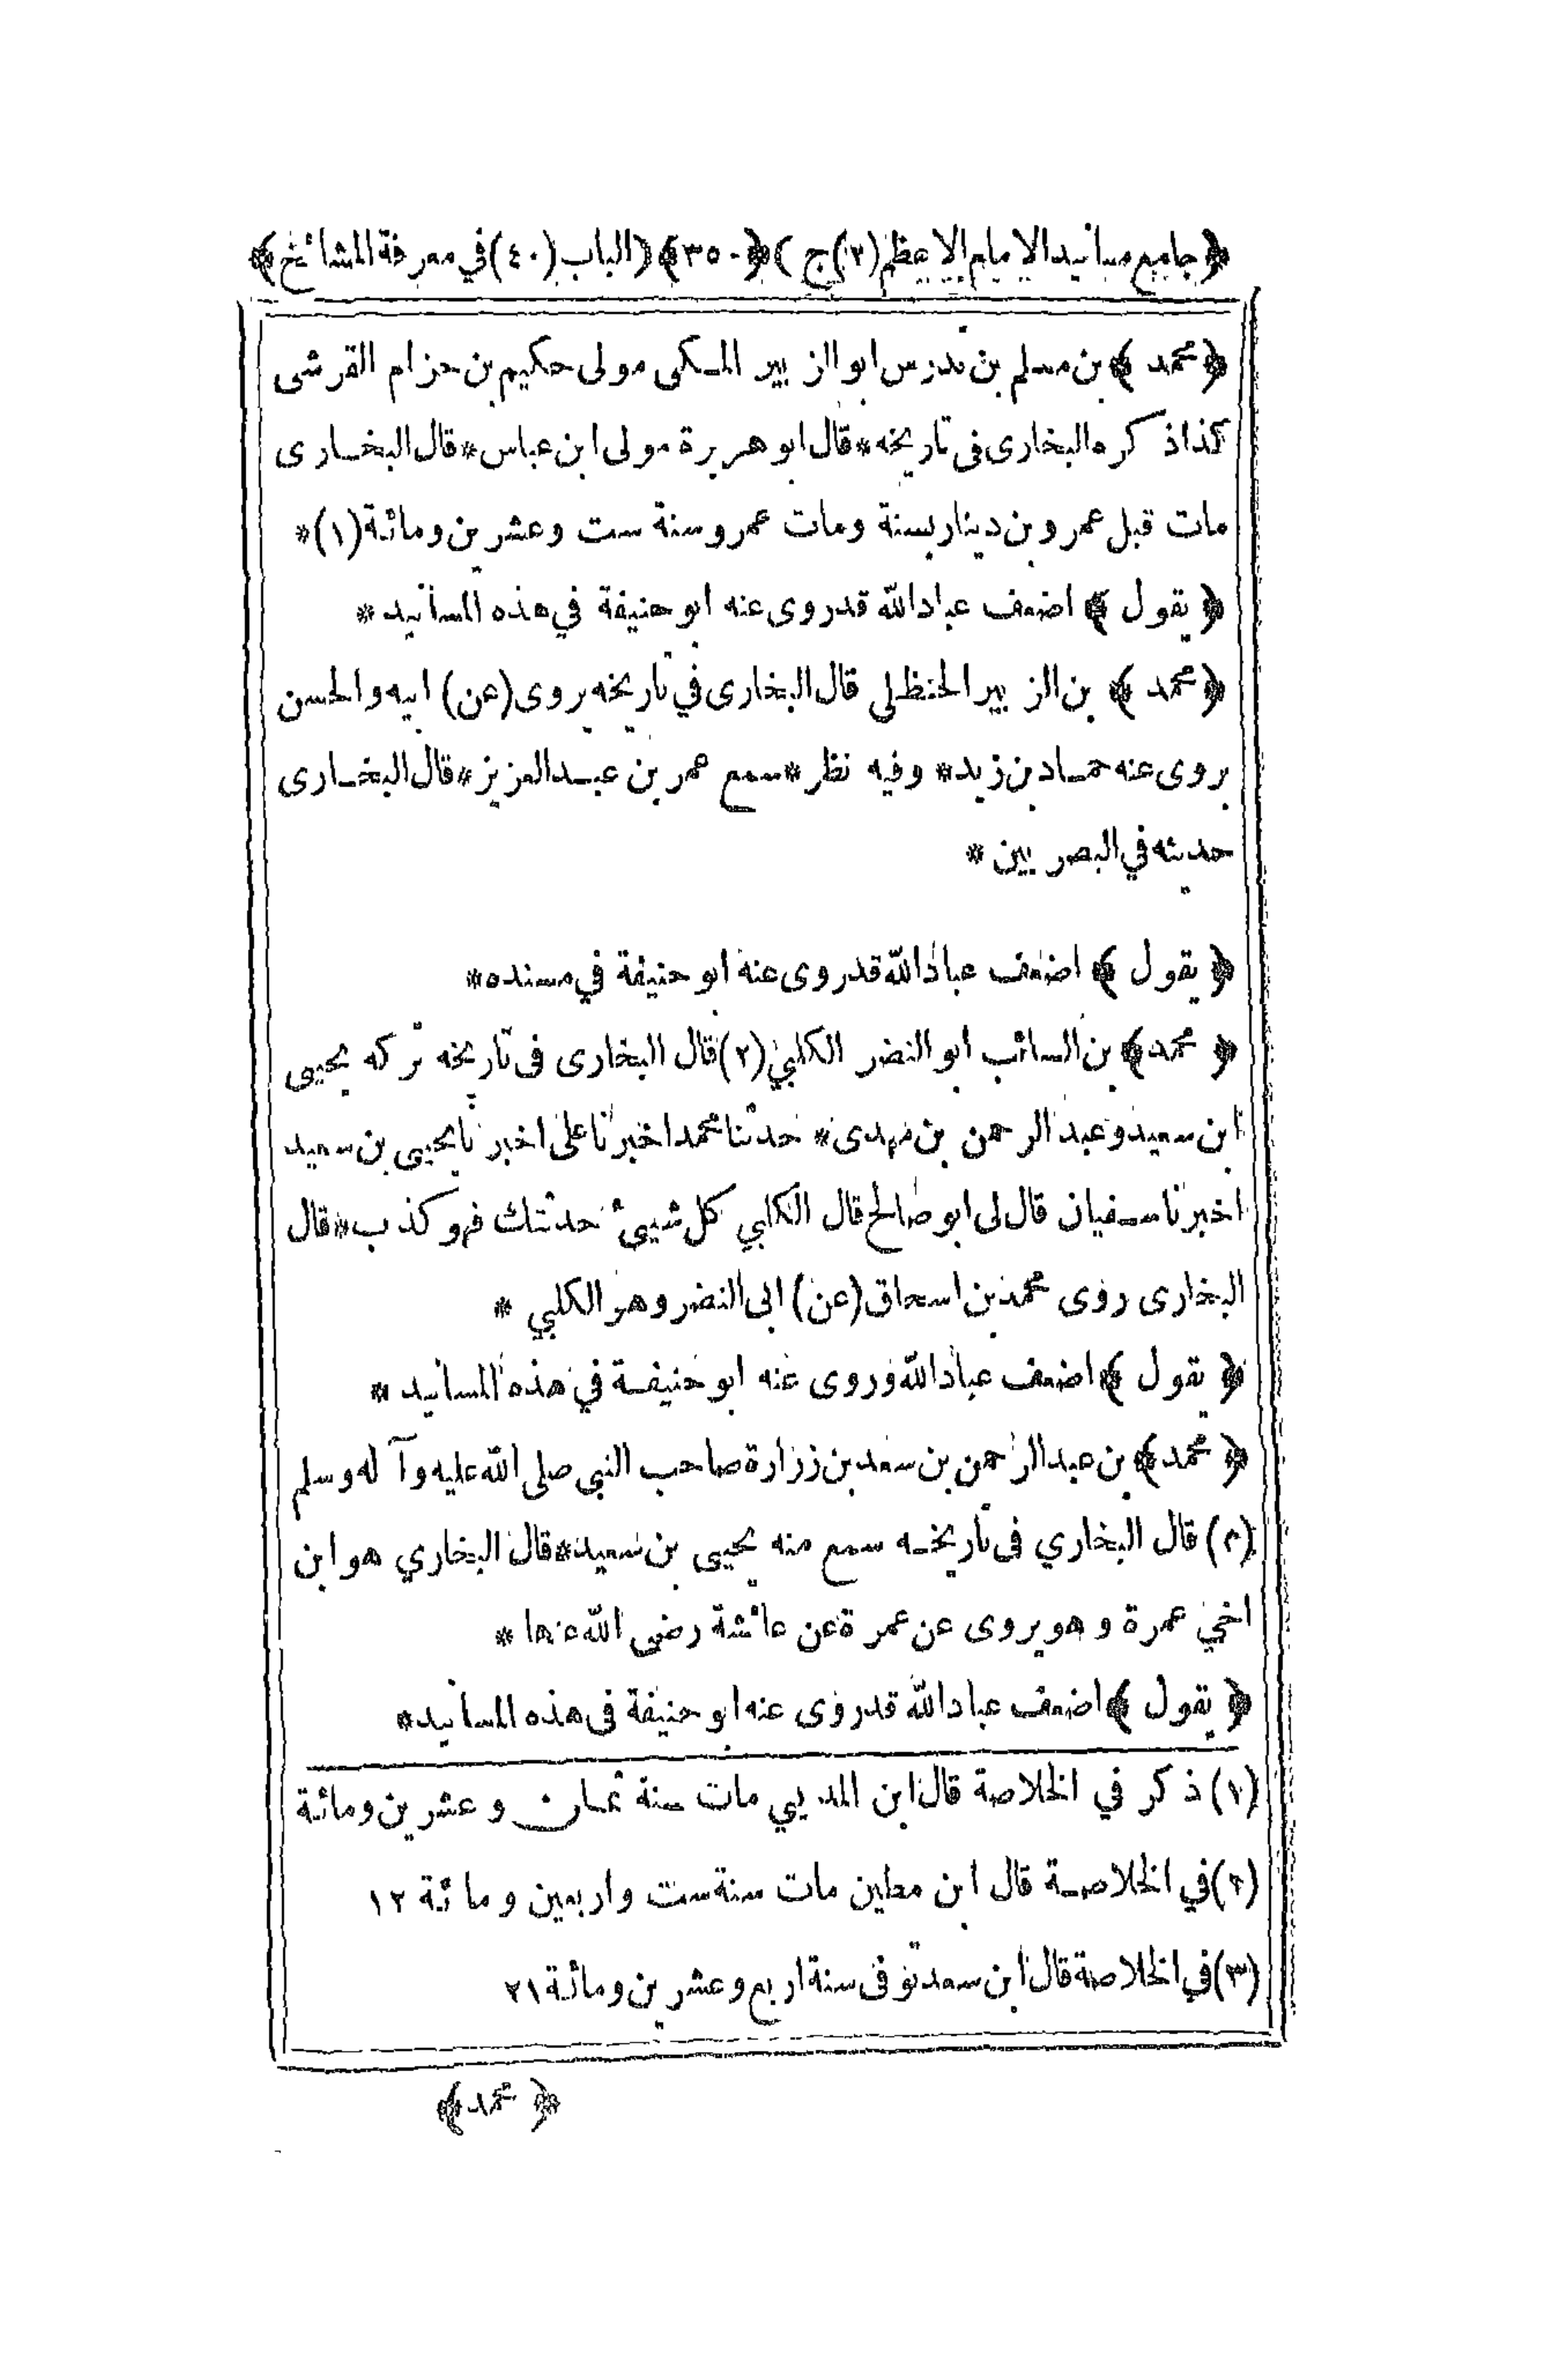 ﴿جامع مسانيد الامام الاعظم (٢) ج ) ﴿٣٥٠﴾ ( الباب (٤٠) في معرفة المشائخ﴾
﴿ محمد ﴾ بن مسلم بن تدرس ابو الزبير المكى مولى حكيم بن حزام القرشى
كذا ذكره البخارى فى تاريخه * قال ابو هريرة مولى ابن عباس * قال البخارى
مات قبل عمرو بن دينار بسنة ومات عمرو سنة ست وعشرين ومائة (١) *
﴿ يقول ﴾ اضعف عباد الله قد روى عنه ابو حنيفة في هذه المسانيد *
﴿ محمد ﴾ بن الزبير الحنظلي قال البخارى في تاريخه يروى (عن) ابيه والحسن
يروى عنه حماد بن زيد * وفيه نظر * سمع عمر بن عبد العزيز * قال البخارى
حديثه في البصريين *
﴿ يقول ﴾ اضعف عباد الله قد روى عنه ابو حنيفة في مسنده *
﴿ محمد ﴾ بن السائب ابو النضر الكلبي (٢) قال البخارى فى تاريخه تركه يحيى
ابن سعيد وعبد الرحمن بن مهدى * حدثنا محمد اخبرنا على اخبرنا يحيى بن سعيد
اخبرنا سفيان قال لى ابو صالح قال الكلبي كل شيئ حدثتك فهو كذب * قال
البخارى روى محمد بن اسحاق (عن) ابى النضر وهو الكلبي *
﴿ يقول ﴾ اضعف عباد الله وروى عنه ابو حنيفة في هذه المسانيد *
﴿ محمد ﴾ بن عبد الرحمن بن سعد بن زرارة صاحب النبي صلى الله عليه وآله وسلم
(٣) قال البخاري فى تاريخه سمع منه يحيى بن سعيد * قال البخاري هو ابن
اخي عمرة وهو يروى عن عمرة عن عائشة رضى الله عنها *
﴿ يقول ﴾ اضعف عباد الله قد روى عنه ابو حنيفة فى هذه المسانيد *
(١) ذكر في الخلاصة قال ابن المديي مات سنة ثمان وعشرين ومائة
(٢) في الخلاصة قال ابن معين مات سنة ست واربعين ومائة ١٢
(٣) في الخلاصة قال ابن سعد توفى سنة اربع وعشرين ومائة ٢١
﴿ محمد ﴾